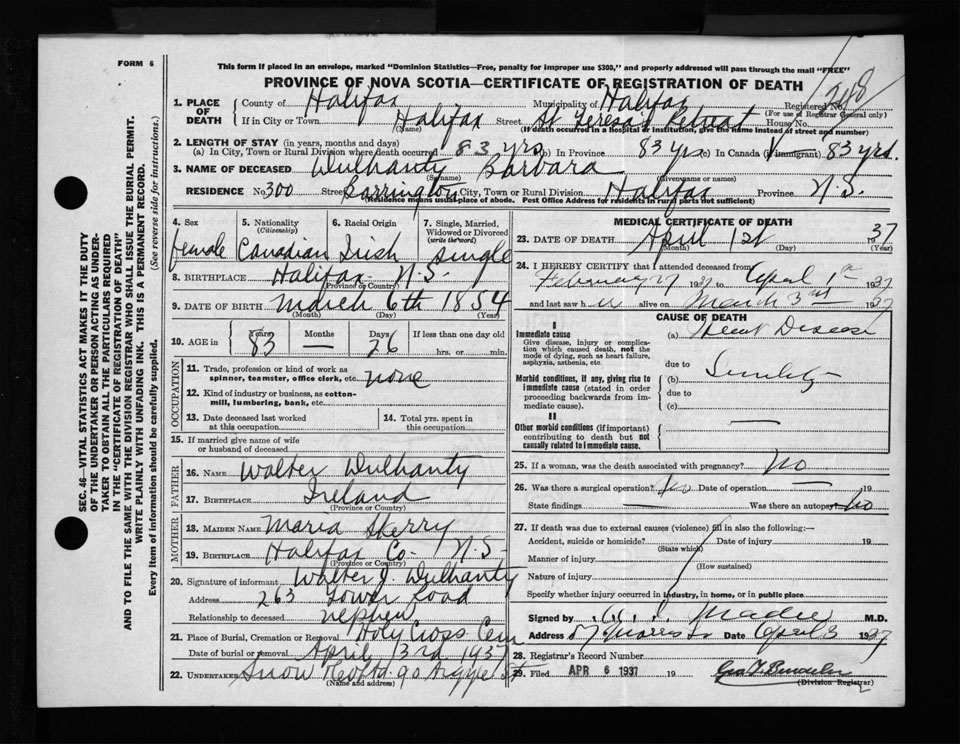 FORM 6
This form if placed in an envelope, marked "Dominion Statistics—Free, penalty for improper use $300," and properly addressed will pass through the mail "FREE"
PROVINCE OF NOVA SCOTIA—CERTIFICATE OF REGISTRATION OF DEATH
1. PLACE OF DEATH
County of Halifax Municipality of Halifax Registered No.
(For use of Registrar General only)
If in City or Town Halifax Street St Teresa's Retreat House No.
(Name) (If death occurred in a hospital or institution, give the name instead of street and number)
2. LENGTH OF STAY (in years, months and days)
(a) In City, Town or Rural Division where death occurred 83 yrs (b) In Province 83 yrs (c) In Canada (if immigrant) 83 yrs.
3. NAME OF DECEASED Dulhanty Barbara
(Surname) (Given name or names)
RESIDENCE No 300 Street Barrington City, Town or Rural Division Halifax Province N.S.
(Residence means usual place of abode. Post Office Address for residents in rural parts not sufficient)
4. Sex female
5. Nationality (Citizenship) Canadian
6. Racial Origin Irish
7. Single, Married, Widowed or Divorced (write the word) single
8. BIRTHPLACE Halifax N.S.
(Province or Country)
9. DATE OF BIRTH March 6th 1854
(Month) (Day) (Year)
10. AGE in Years 83 Months — Days 26 If less than one day old
hrs. or min.
OCCUPATION
11. Trade, profession or kind of work as spinner, teamster, office clerk, etc. none
12. Kind of industry or business, as cotton-mill, lumbering, bank, etc.
13. Date deceased last worked at this occupation
14. Total yrs. spent in this occupation
15. If married give name of wife or husband of deceased
FATHER
16. NAME Walter Dulhanty
17. BIRTHPLACE Ireland
(Province or Country)
MOTHER
18. MAIDEN NAME Maria Sherry
19. BIRTHPLACE Halifax Co. N.S.
(Province or Country)
20. Signature of informant Walter J. Dulhanty
Address 263 Tower Road
Relationship to deceased nephew
21. Place of Burial, Cremation or Removal Holy Cross Cem
Date of burial or removal April 3rd 1937
22. UNDERTAKER Snow & Co Ltd. 90 Argyle St
(Name and address)
MEDICAL CERTIFICATE OF DEATH
23. DATE OF DEATH April 1st 1937
(Month) (Day) (Year)
24. I HEREBY CERTIFY that I attended deceased from
February 27 1937 to April 1st 1937
and last saw her alive on March 3rd 1937
CAUSE OF DEATH
I
Immediate cause (a) Heart Disease
Give disease, injury or complication which caused death, not the mode of dying, such as heart failure, asphyxia, asthenia, etc.
due to
Morbid conditions, if any, giving rise to immediate cause (stated in order proceeding backwards from immediate cause).
(b) Senility
due to
(c)
II
Other morbid conditions (if important) contributing to death but not causally related to immediate cause. —
25. If a woman, was the death associated with pregnancy? No
26. Was there a surgical operation? No Date of operation — 19
State findings — Was there an autopsy? No
27. If death was due to external causes (violence) fill in also the following:—
Accident, suicide or homicide? Date of injury 19
(State which)
Manner of injury
(How sustained)
Nature of injury
Specify whether injury occurred in industry, in home, or in public place
Signed by Madec M.D.
Address 57 Morris St Date April 3 1937
28. Registrar's Record Number
29. Filed APR 6 1937 19
(Division Registrar)
SEC. 46—VITAL STATISTICS ACT MAKES IT THE DUTY
OF THE UNDERTAKER OR PERSON ACTING AS UNDER-
TAKER TO OBTAIN ALL THE PARTICULARS REQUIRED
IN THE "CERTIFICATE OF REGISTRATION OF DEATH"
AND TO FILE THE SAME WITH THE DIVISION REGISTRAR WHO SHALL ISSUE THE BURIAL PERMIT.
WRITE PLAINLY WITH UNFADING INK. THIS IS A PERMANENT RECORD.
Every item of information should be carefully supplied. (See reverse side for instructions.)